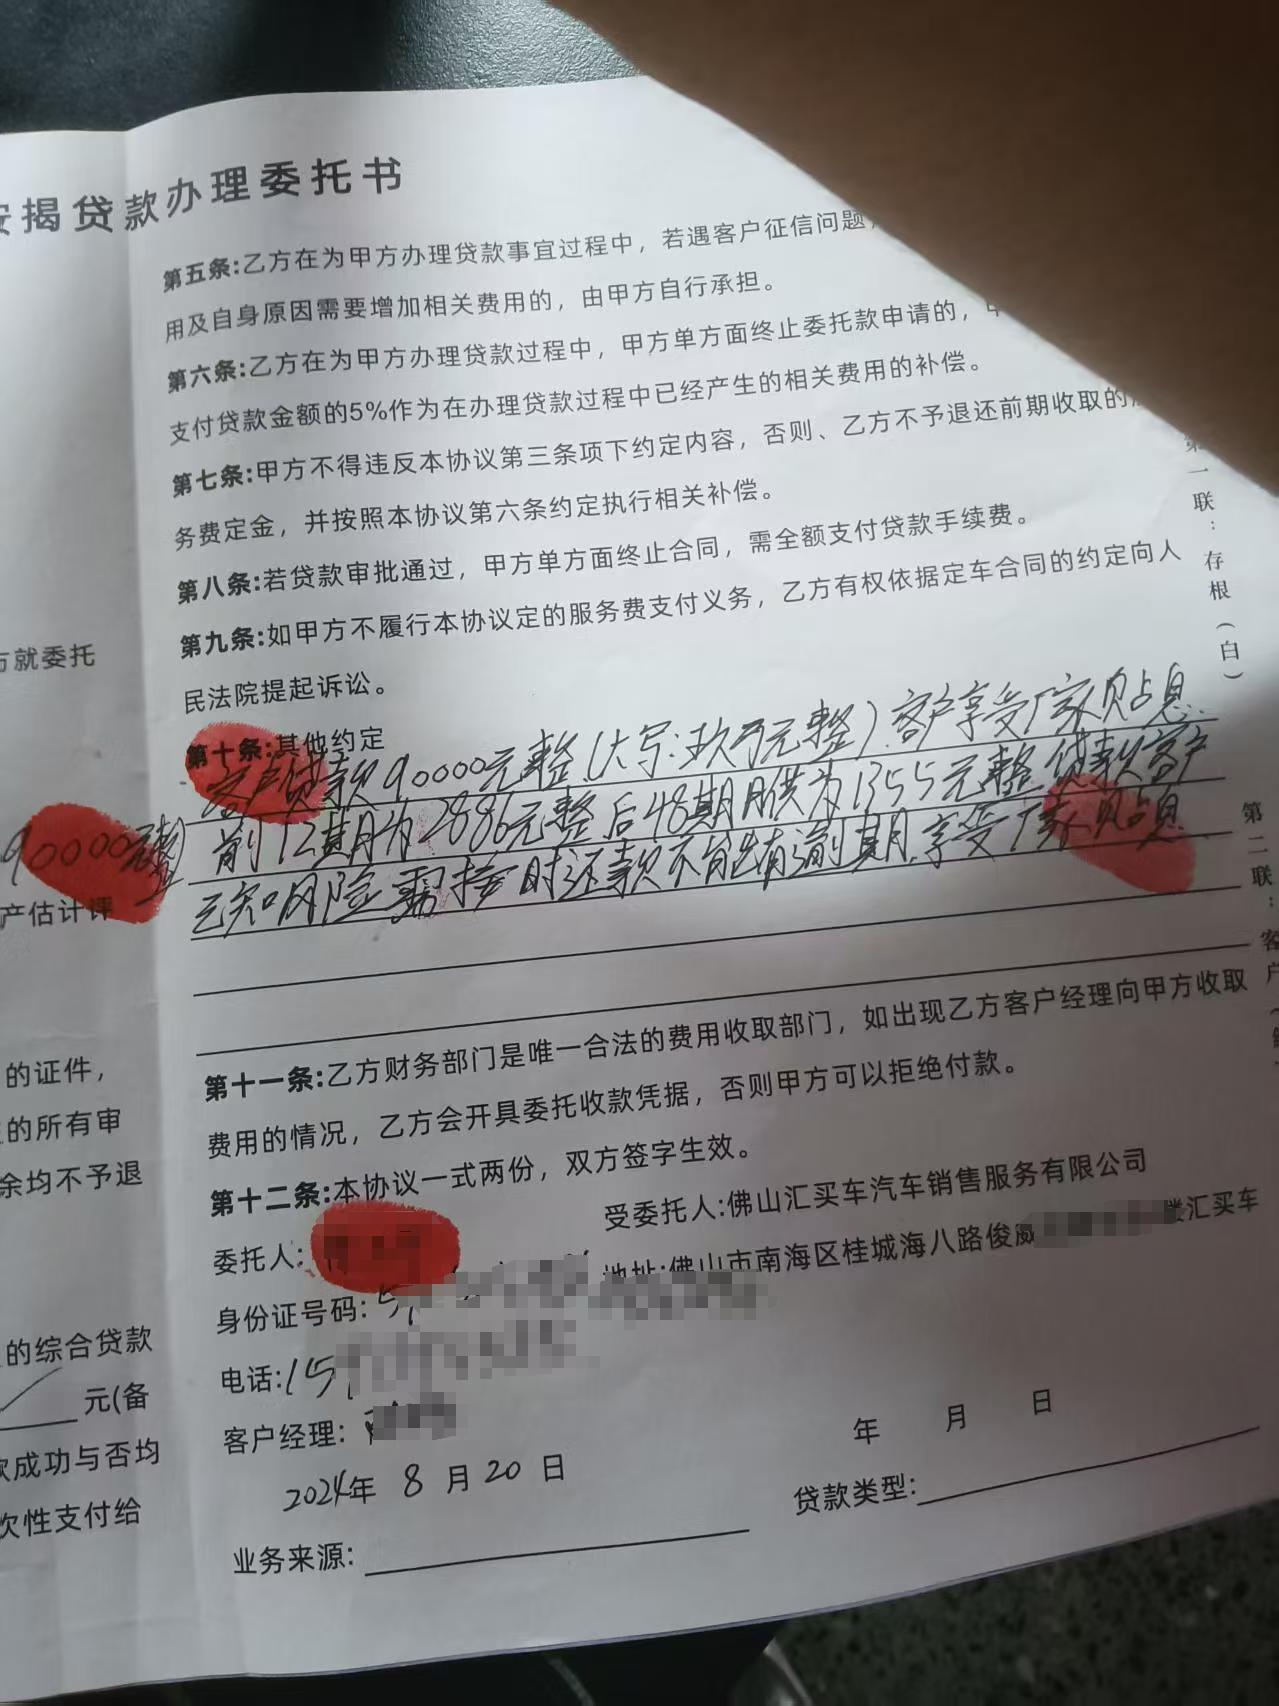 按揭贷款办理委托书
第五条:乙方在为甲方办理贷款事宜过程中，若遇客户征信问题，
用及自身原因需要增加相关费用的，由甲方自行承担。
第六条:乙方在为甲方办理贷款过程中，甲方单方面终止委托款申请的，甲
支付贷款金额的5%作为在办理贷款过程中已经产生的相关费用的补偿。
第七条:甲方不得违反本协议第三条项下约定内容，否则、乙方不予退还前期收取的
务费定金，并按照本协议第六条约定执行相关补偿。
第八条:若贷款审批通过，甲方单方面终止合同，需全额支付贷款手续费。
第九条:如甲方不履行本协议定的服务费支付义务，乙方有权依据定车合同的约定向人
民法院提起诉讼。
第十条:其他约定
客户贷款90000元整(大写:玖万元整).客户享受厂家贴息
前12期月为2886元整后48期月供为1355元整贷款客户
已知风险需按时还款不能有逾期.享受厂家贴息
第十一条:乙方财务部门是唯一合法的费用收取部门，如出现乙方客户经理向甲方收取
费用的情况，乙方会开具委托收款凭据，否则甲方可以拒绝付款。
第十二条:本协议一式两份，双方签字生效。
委托人:
受委托人:佛山汇买车汽车销售服务有限公司
身份证号码:
地址:佛山市南海区桂城海八路俊 楼汇买车
电话:15
客户经理:
2024年 8 月 20 日
年 月 日
业务来源:
贷款类型:
方就委托
90000元整
产估计评
的证件，
的所有审
余均不予退
的综合贷款
元(备
款成功与否均
次性支付给
第一联:存根(白)
第二联:客户(